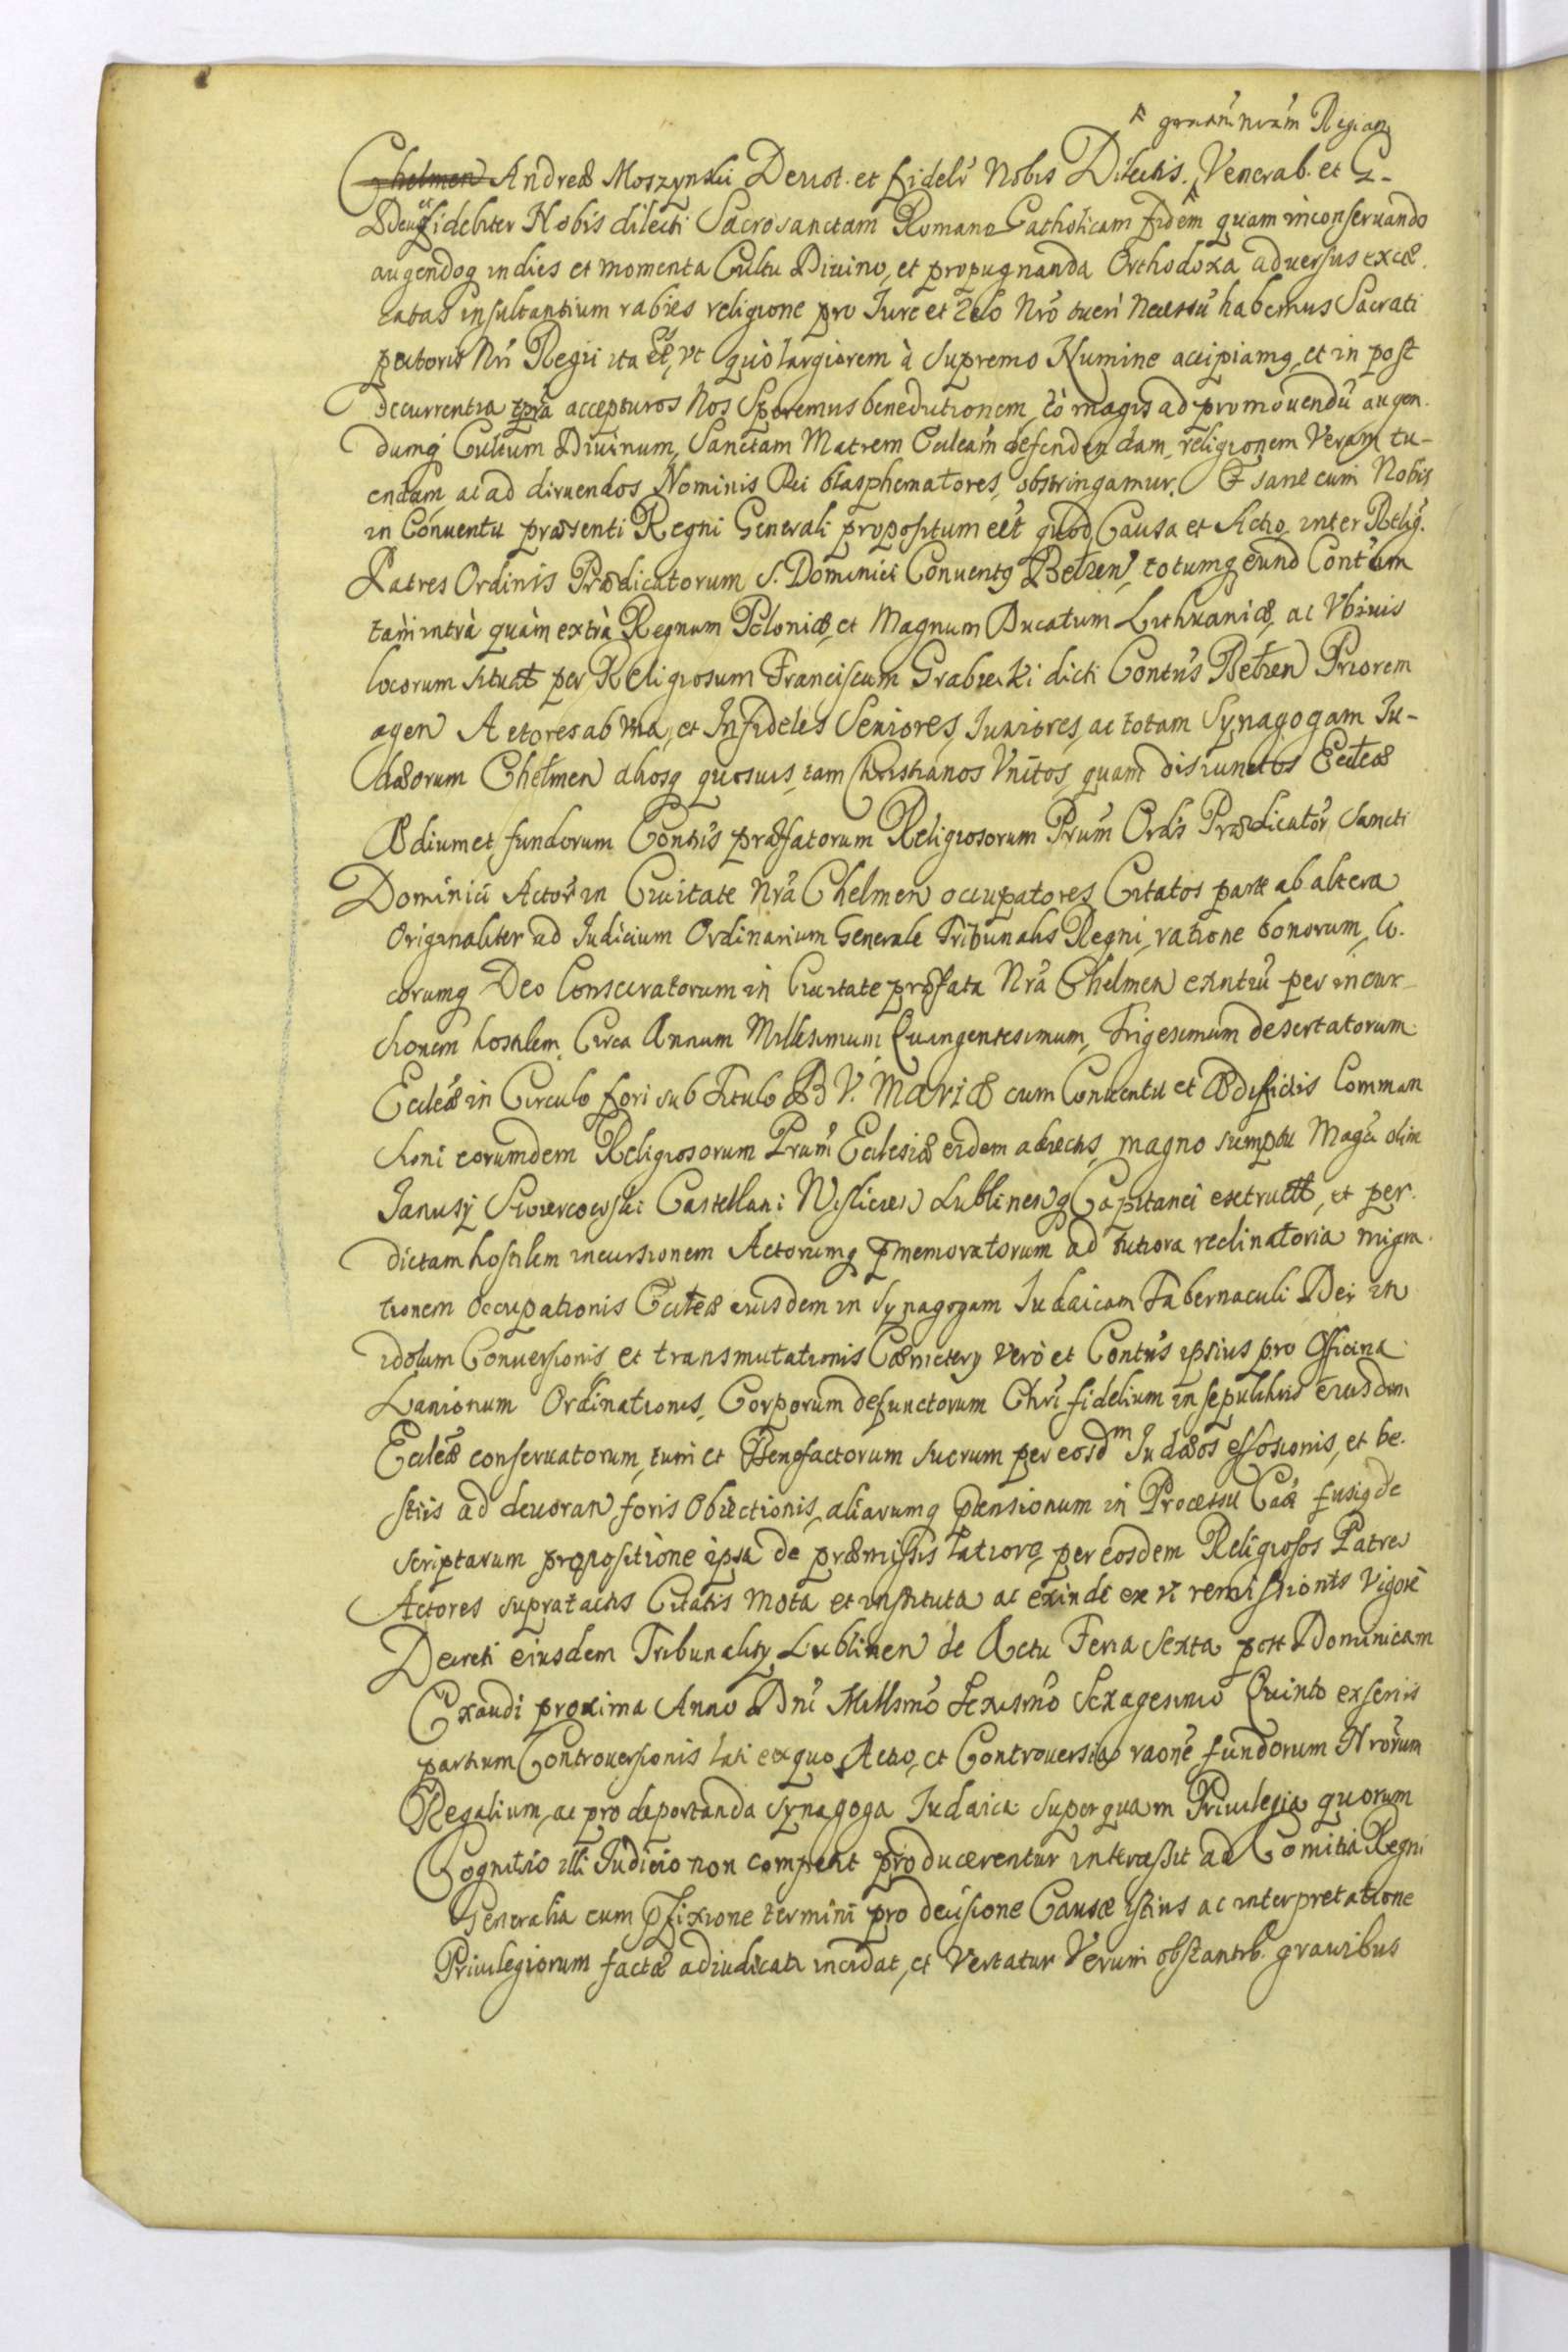 gratiam nram Regiam
Chelmen Andreæ Moszynski Deuot. et fideli Nobis Dilectis. Venerab. et G-
Deu. et fideliter Nobis dilecti Sacrosanctam Romano Catholicam fidem quam in conseruando
augendoq indies et momenta Cultu Diuino, et propugnanda Orthodoxa aduersus excæ
catas insultantium rabies religione pro Jure et Zelo Nro tueri Necessu habemus Sacrati
pectoris Nri Regii ita ut quò largiorem à Supremo Numine accipiamq, et in post
decurrentia tpra accepturos Nos Speremus benedictionem, eò magis ad promouendũ augen-
dumq Cultum Diuinum, Sanctam Matrem Eccleam defendendam, religionem Veram tu-
endam, ac ad diruendos Nominis Dei blasphematores, obstringamur. Et sane cum Nobis
in Conuentu præsenti Regni Generali propositum eet quod Causa et Actio inter Relig.
Patres Ordinis Prædicatorum S. Dominici Conuentq Belzen, totumq eund Contum
tàm intrà quàm extrà Regnum Poloniæ, et Magnum Ducatum Lithuaniæ, ac Vbiuis
locorum situat per Religiosum Franciscum Grabiecki dicti Contus Belzen Priorem
agen Actores ab vna, et Infideles Seniores, Juniores, ac totam Synagogam Ju-
dæorum Chelmen aliosq quosuis, tam Christianos Vnitos, quam disiunctos Eccleæ
Ædium et fundorum Contus præfatorum Religiosorum Prum Ordis Prædicator Sancti
Dominici Actor in Ciuitate Nra Chelmen occupatores Citatos parte ab altera
Originaliter ad Judicium Ordinarium Generale Tribunalis Regni, ratione bonorum, lo-
corumq Deo Consecratorum in Ciuitate præfata Nra Chelmen exntiũ per incur-
sionem hostilem Circa Annum Millesimum Quingentesimum, Trigesimum desertatorum
Eccleæ in Circulo fori sub Titulo B V. Mariæ cum Conuentu et Ædificiis Comman
sioni eorumdem Religiosorum Prum Ecclesiæ eidem adiectis, magno sumptu Magci olim
Janusij Swiercowski Castellani Wislicien Lublinenq Capitanei exstruct, et per
dictam hostilem incursionem Actorumq pmemoratorum ad tutiora reclinatoria migra-
tionem Occupationis Eccleæ eiusdem in Synagogam Judaicam Tabernaculi Dei in
idolum Conuersionis et transmutationis Cæmeterij verò et Contus ipsius pro Officina
Lanionum Ordinationis, Corporum defunctorum Chri fidelium in sepulchris eiusdem
Eccleæ conseruatorum, tum et Benefactorum suorum per eosdm Judæos effossionis, et be-
stiis ad deuoran foris Obiectionis, aliarumq pænsionum in Processu Caæ fusiq de
scriptarum propositione ipsa de præmissis latiore, per eosdem Religiosos Patres
Actores supratactis Citatis mota et instituta ac exinde ex vi remissionis Vigore
Decreti eiusdem Tribunalis Lublinen de Actu Feria Sexta post Dominicam
Exaudi proxima Anno Dni Millsmo Sexcsmo Sexagesimo Quinto exseriis
partium Controuersionis lati ex quo, Actio, et Controuersia raone fundorum Nrorum
Regalium, ac pro deportanda Synagoga Judaica super quam Priuilegia quorum
Cognitio illi Judicio non competit producerentur intercessit ad Comitia Regni
Generalia cum pfixione termini pro decisione Causæ istius ac interpretatione
Priuilegiorum factæ adiudicati incidat, et Vertatur Verum obstantib grauibus